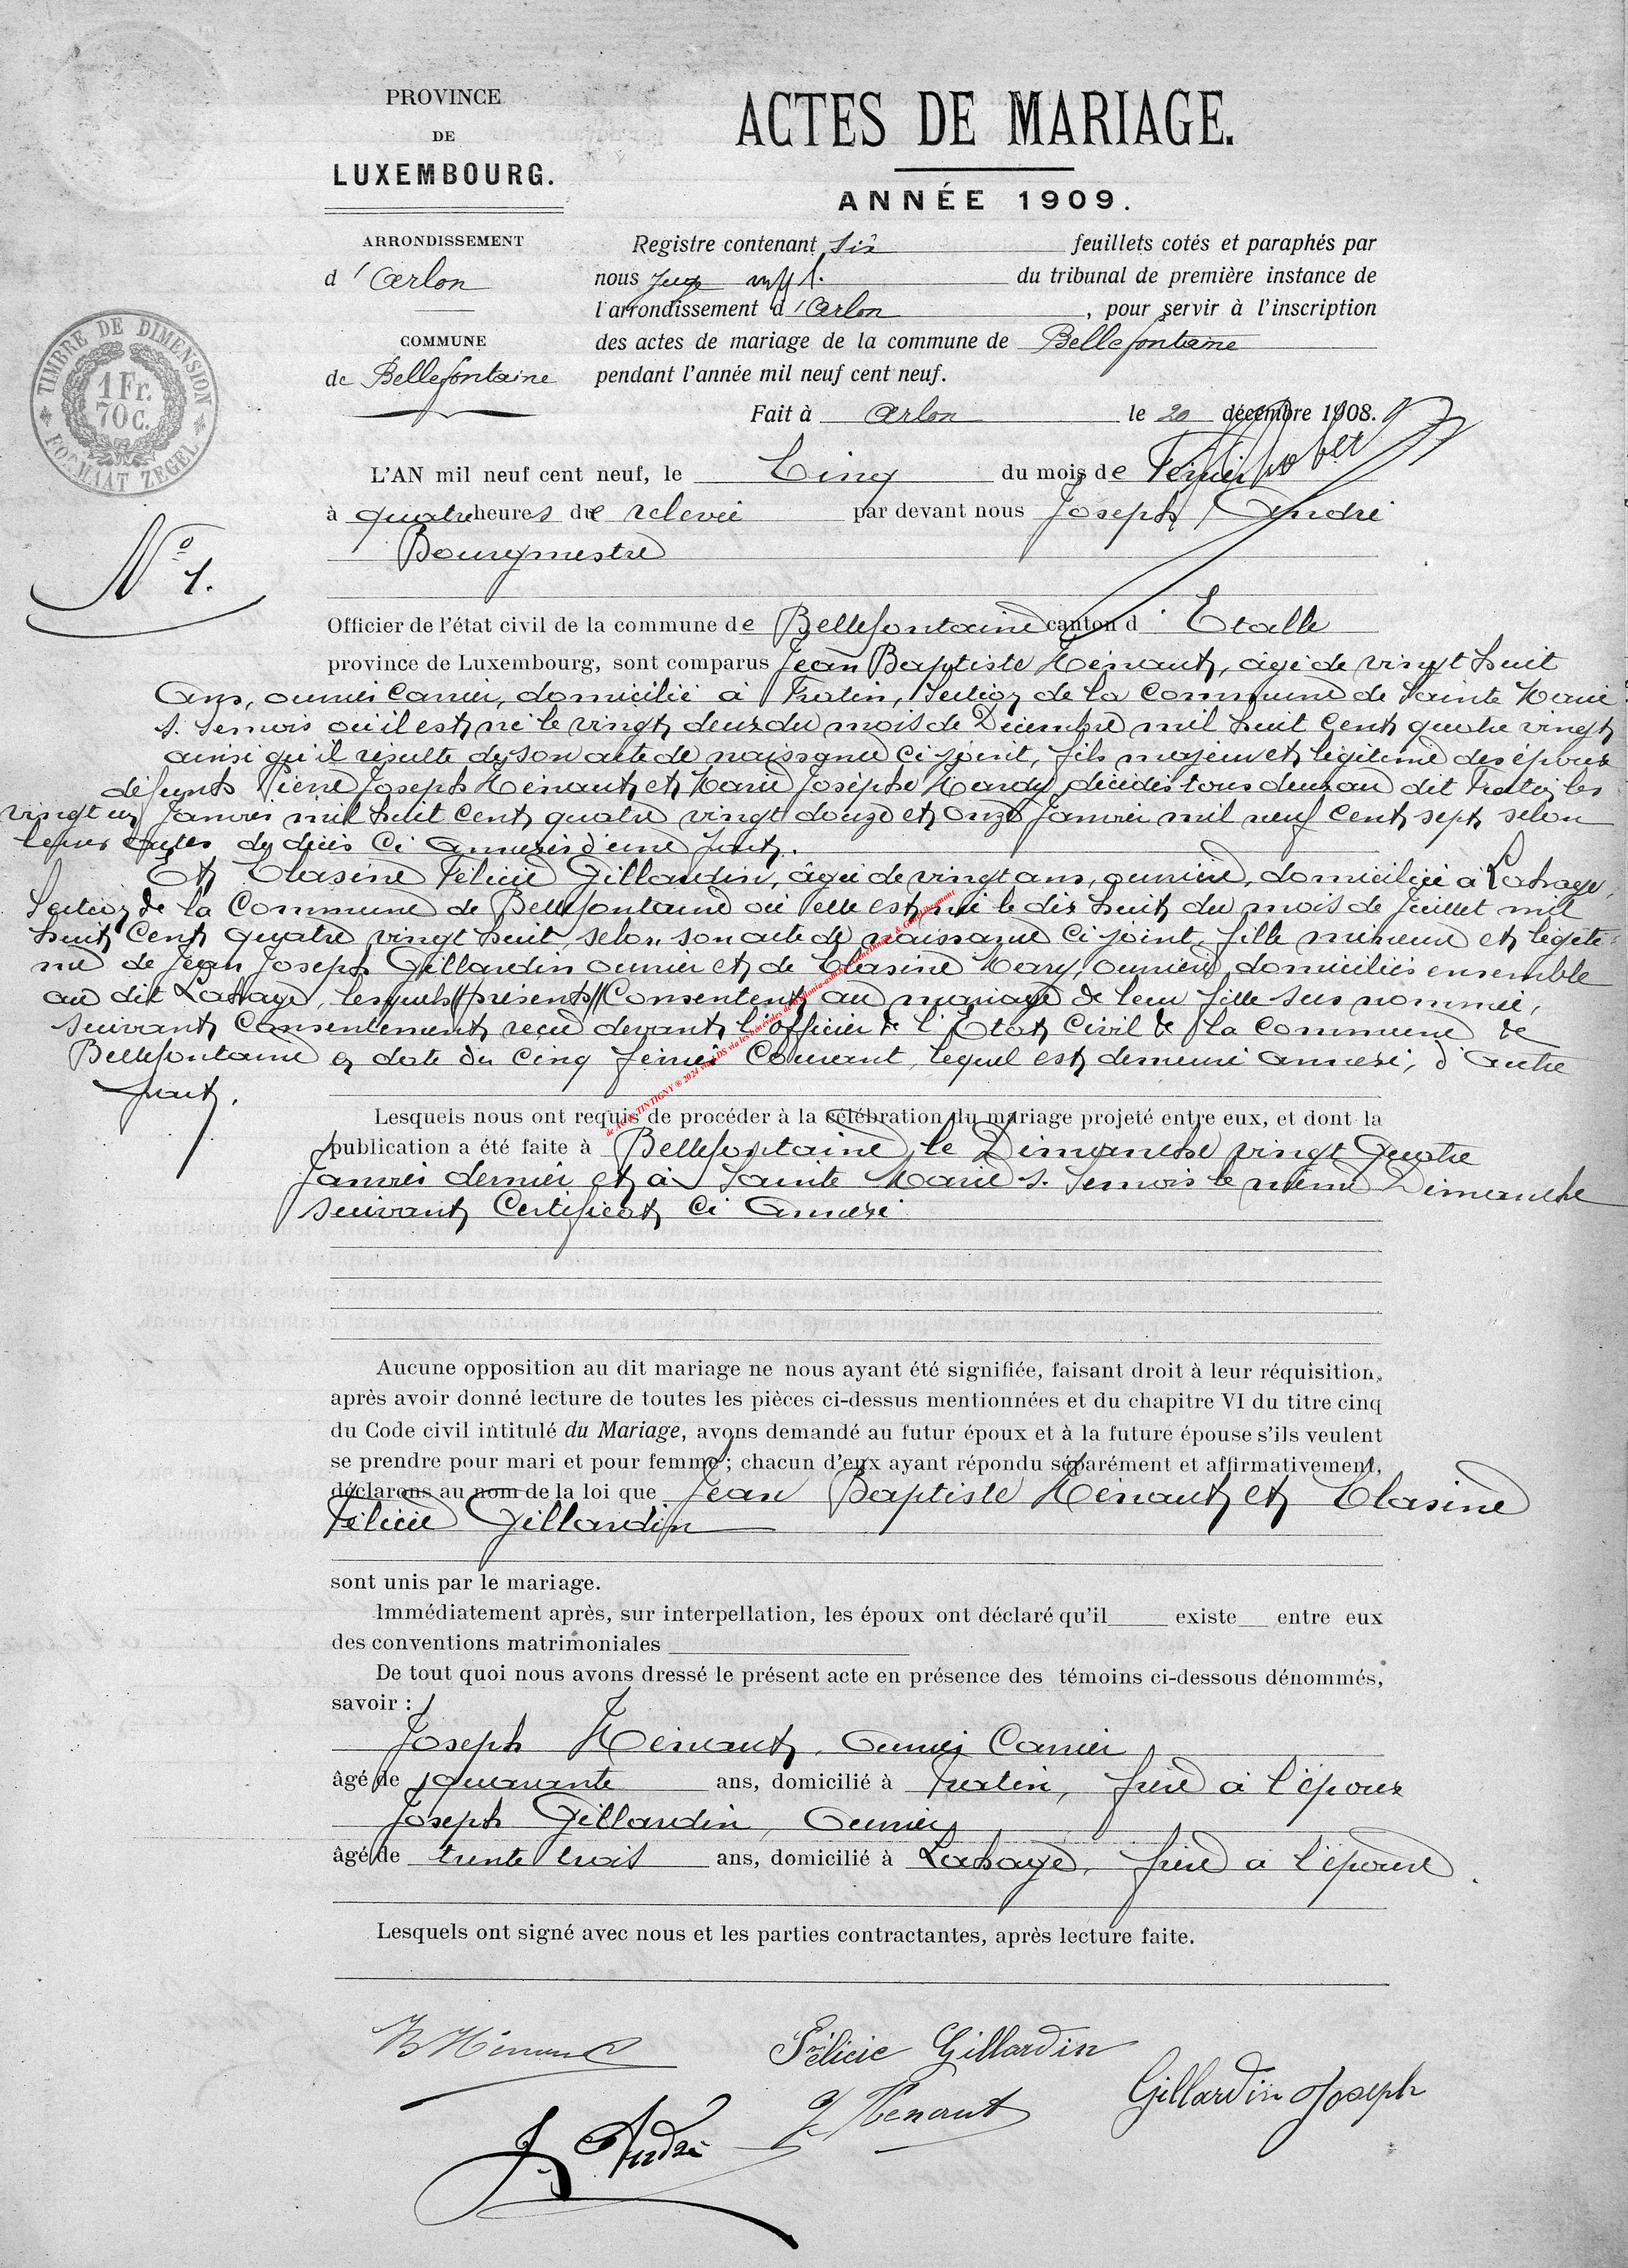 PROVINCE
DE
LUXEMBOURG.
ACTES DE MARIAGE.
ANNÉE 1909.
ARRONDISSEMENT
d'Arlon
COMMUNE
de Bellefontaine
TIMBRE DE DIMENSION
1 Fr.
70 c.
FORMAAT ZEGEL
Registre contenant six feuillets cotés et paraphés par
nous juge du tribunal de première instance de
l'arrondissement d'Arlon, pour servir à l'inscription
des actes de mariage de la commune de Bellefontaine
pendant l'année mil neuf cent neuf.
Fait à Arlon le 20 décembre 1908.
N° 1.
L'AN mil neuf cent neuf, le Cinq du mois de Février
à quatre heures de relevée par devant nous Joseph André
Bourgmestre
Officier de l'état civil de la commune de Bellefontaine canton d'Etalle
province de Luxembourg, sont comparus Jean Baptiste Hénaut, âgé de vingt huit
ans, ouvrier carrier, domicilié à Fratin, section de la Commune de Sainte Marie
s. Semois où il est né le vingt deux du mois de Décembre mil huit cent quatre vingt
ainsi qu'il résulte de son acte de naissance ci joint, fils majeur et légitime des époux
défunts Pierre Joseph Hénaut et Marie Josèphe Hardy décédés tous deux au dit Fratin les
vingt un Janvier mil huit cent quatre vingt douze et onze Janvier mil neuf cent sept selon
leurs actes de décès ci annexés d'une part.
Et Clasine Félicie Gillardin, âgée de vingt ans, ouvrière, domiciliée à Lahage,
Section de la Commune de Bellefontaine où elle est née le dix huit du mois de Juillet mil
huit cent quatre vingt huit, selon son acte de naissance ci joint, fille mineure et légiti-
me de Jean Joseph Gillardin ouvrier et de Clasine Mary, ouvrière, domiciliés ensemble
au dit Lahage, lesquels (présents) consentent au mariage de leur fille sus nommée,
suivant consentement reçu devant l'officier de l'Etat Civil de la commune de
Bellefontaine en date du cinq février courant, lequel est demeuré annexé, d'autre
part.
Lesquels nous ont requis de procéder à la célébration du mariage projeté entre eux, et dont la
publication a été faite à Bellefontaine, le Dimanche vingt quatre
Janvier dernier et à Sainte Marie s. Semois le même Dimanche
suivant Certificat ci annexé
Aucune opposition au dit mariage ne nous ayant été signifiée, faisant droit à leur réquisition,
après avoir donné lecture de toutes les pièces ci-dessus mentionnées et du chapitre VI du titre cinq
du Code civil intitulé du Mariage, avons demandé au futur époux et à la future épouse s'ils veulent
se prendre pour mari et pour femme ; chacun d'eux ayant répondu séparément et affirmativement,
déclarons au nom de la loi que Jean Baptiste Hénaut et Clasine
Félicie Gillardin
sont unis par le mariage.
Immédiatement après, sur interpellation, les époux ont déclaré qu'il existe entre eux
des conventions matrimoniales
De tout quoi nous avons dressé le présent acte en présence des témoins ci-dessous dénommés,
savoir :
Joseph Hénaut, Ouvrier Carrier
âgé de quarante ans, domicilié à Fratin, frère à l'époux
Joseph Gillardin, Ouvrier
âgé de trente trois ans, domicilié à Lahage, frère à l'épouse.
Lesquels ont signé avec nous et les parties contractantes, après lecture faite.
JB Hénaut
Félicie Gillardin
J. Henaut
Gillardin Joseph
J. André